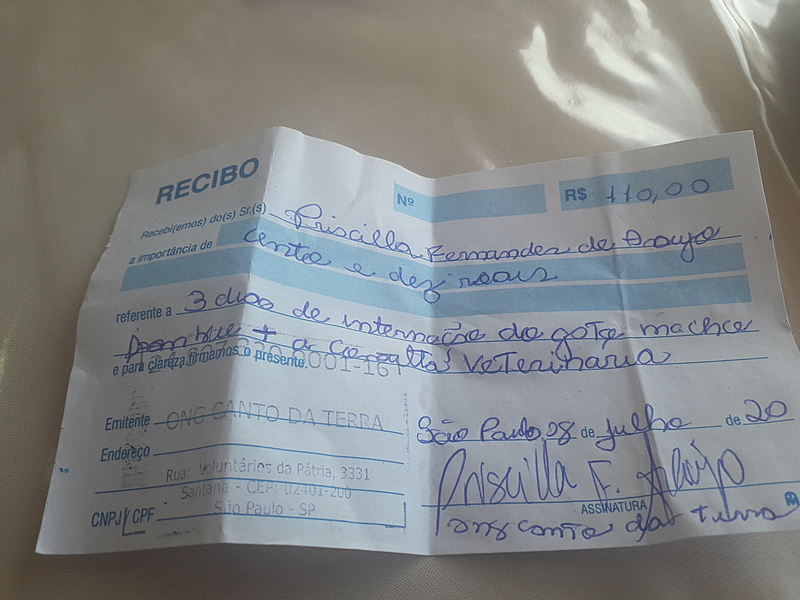 RECIBO
Nº
R$ 110,00
Recebi(emos) do(s) Sr.(s) Priscilla Fernandes de Araujo
a importância de cento e dez reais
referente a 3 dias de internação do gote machce
+ a Consulta Veterinaria
e para clareza firmamos o presente.
0001-16
Emitente ONG CANTO DA TERRA
São Paulo, 28 de julho de 20
Endereço
Rua: Voluntários da Pátria, 3331
Santana - CEP: 02401-200
São Paulo - SP
CNPJ/CPF
Priscilla F. Araujo
ASSINATURA
ong canto da terra